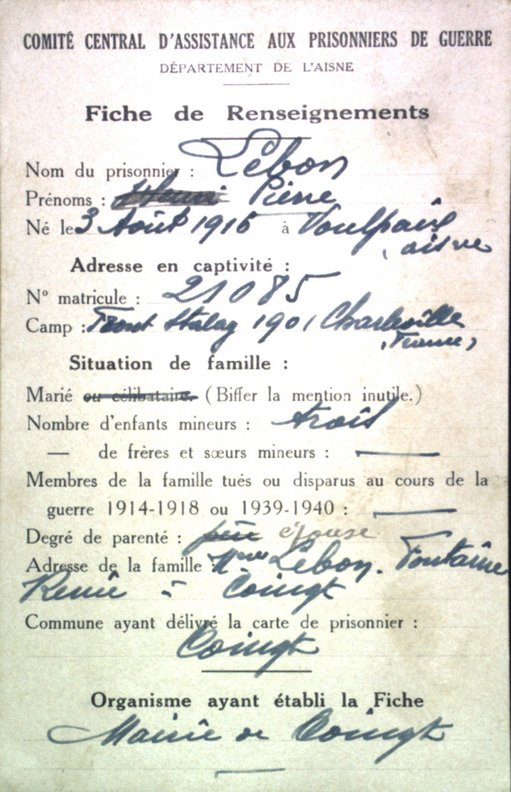 COMITÉ CENTRAL D'ASSISTANCE AUX PRISONNIERS DE GUERRE
DÉPARTEMENT DE L'AISNE
Fiche de Renseignements
Nom du prisonnier : Lebon
Prénoms : Henri Pierre
Né le 3 Août 1916 à Voulpaix
(aisne
Adresse en captivité :
N° matricule : 21085
Camp : Front Stalag 190 Charleville
(France)
Situation de famille :
Marié ou célibataire. (Biffer la mention inutile.)
Nombre d'enfants mineurs : trois
— de frères et sœurs mineurs : —
Membres de la famille tués ou disparus au cours de la
guerre 1914-1918 ou 1939-1940 : —
Degré de parenté : père épouse
Adresse de la famille Mme Lebon. Fontaine
Renée à Coingt
Commune ayant délivré la carte de prisonnier :
Coingt
Organisme ayant établi la Fiche
Mairie de Coingt